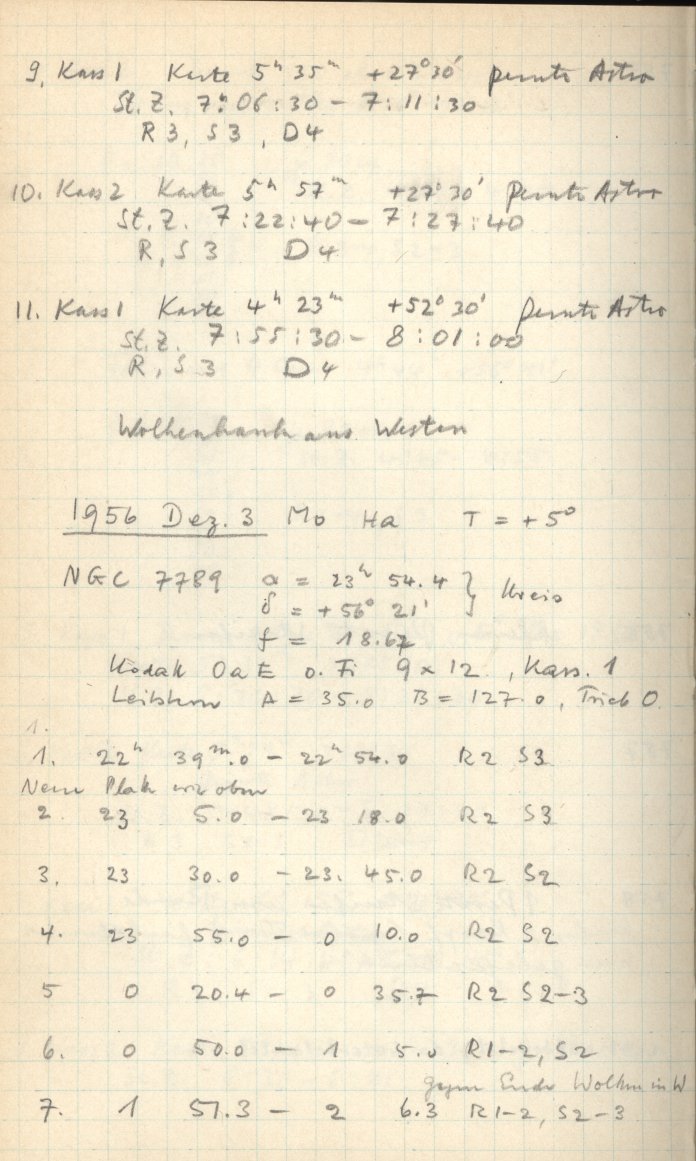 9. Kass 1 Karte 5h 35m +27° 30' Perutz Astro
St. Z. 7h 06:30 – 7:11:30
R 3, S 3, D 4
10. Kass 2 Karte 5h 57m +27° 30' Perutz Astro
St. Z. 7:22:40 – 7:27:40
R, S 3 D 4
11. Kass 1 Karte 4h 23m +52° 30' Perutz Astro
St. Z. 7:55:30 – 8:01:00
R, S 3 D 4
Wolkenbank aus Westen
1956 Dez. 3 Mo Ha T = +5°
NGC 7789 α = 23h 54.4 } Kreis
δ = +56° 21'
f = 18.67
Kodak OaE o. Fi 9 x 12, Kass. 1
Leitstern A = 35.0 B = 127.0, Trieb 0
1.
1. 22h 39m.0 – 22h 54.0 R2 S3
Neue Platte wie oben
2. 23 5.0 – 23 18.0 R2 S3
3. 23 30.0 – 23. 45.0 R2 S2
4. 23 55.0 – 0 10.0 R2 S2
5 0 20.4 – 0 35.7 R2 S2-3
6. 0 50.0 – 1 5.0 R1-2, S2
gegen Ende Wolken in W
7. 1 51.3 – 2 6.3 R1-2, S2-3